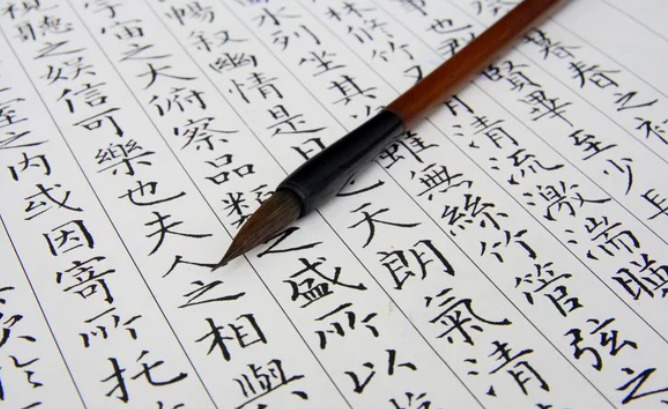 暮春之
賢畢至少長
林修竹又清流激湍暎
水列坐其次雖無絲竹管弦之
暢敘幽情是日也天朗氣清
宇宙之大府察品類之盛所以
視聽之娛信可樂也夫人之相與
室之內或因寄所托
於